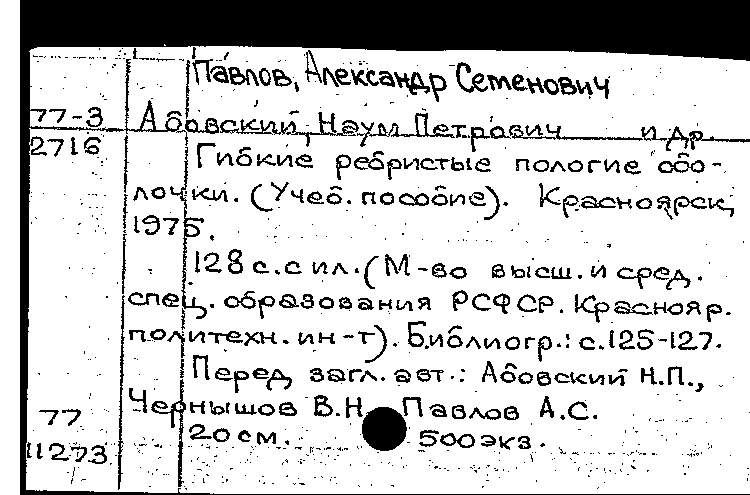 Павлов, Александр Семенович
77-3 Абовский, Наум Петрович и др.
2716 Гибкие ребристые пологие обо-
лочки. (Учеб. пособие). Красноярск,
1975.
128 с. с ил. (М-во высш. и сред.
спец. образования РСФСР. Краснояр.
политехн. ин-т). Библиогр.: с. 125-127.
Перед загл. авт.: Абовский Н.П.,
Чернышов В.Н. Павлов А.С.
77 20 см. 500 экз.
11273